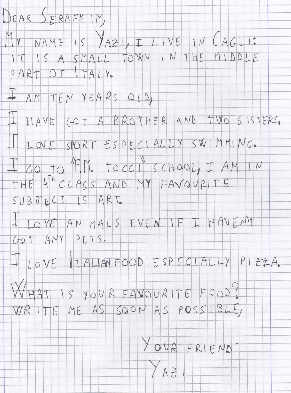 DEAR SERAFEIM,
MY NAME IS YAZI, I LIVE IN CAGLI:
IT IS A SMALL TOWN IN THE MIDDLE
PART OF ITALY.
I AM TEN YEARS OLD,
I HAVE GOT A BROTHER AND TWO SISTERS.
I LOVE SPORT ESPECIALLY SWIMMING.
I GO TO "F.M. TOCCI" SCHOOL, I AM IN
THE 4TH CLASS AND MY FAVOURITE
SUBJECT IS ART.
I LOVE ANIMALS EVEN IF I HAVEN'T
GOT ANY PETS.
I LOVE ITALIAN FOOD ESPECIALLY PIZZA.
WHAT IS YOUR FAVOURITE FOOD?
WRITE ME AS SOON AS POSSIBLE,
YOUR FRIEND:
YAZI